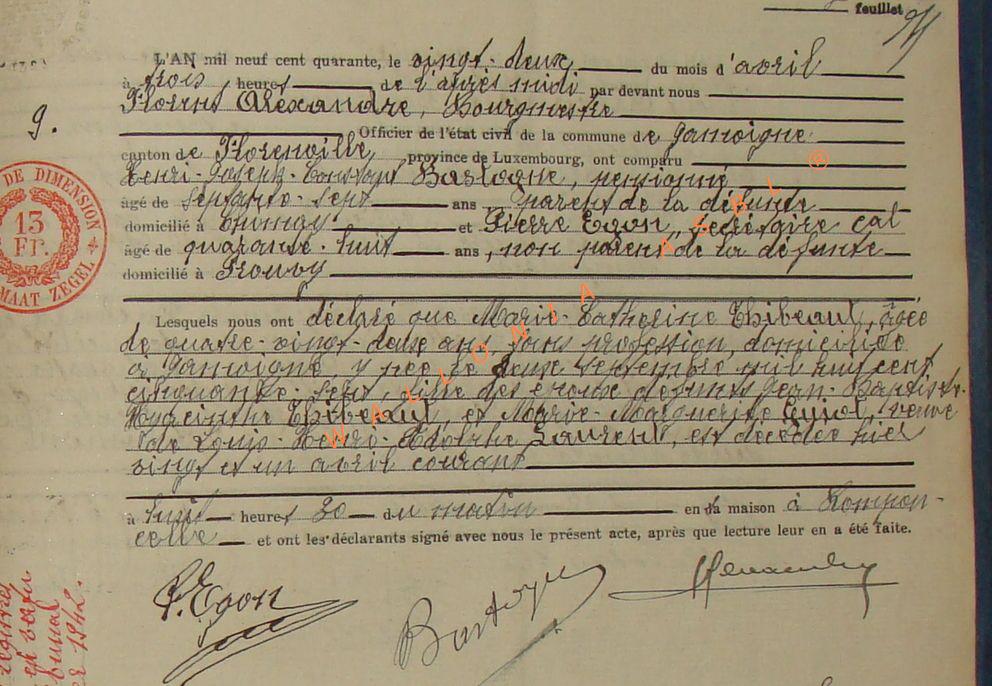 feuillet
L'AN mil neuf cent quarante, le vingt-deux du mois d'avril
à trois heures de l'après midi par devant nous
Florent Alexandre, Bourgmestre
9.
Officier de l'état civil de la commune de Jamoigne
canton de Florenville province de Luxembourg, ont comparu
Henri-Joseph-Constant Bastogne, pensionné
âgé de septante-sept ans, parent de la défunte
domicilié à et Pierre Egon, secrétaire cal
âgé de quarante-huit ans, non parent de la défunte
domicilié à Prouvy
Lesquels nous ont déclaré que Marie-Catherine Thibeaut, âgée
de quatre-vingt-deux ans, sans profession, domiciliée
à Jamoigne, y née le deux septembre mil huit cent
cinquante-sept, fille des époux défunts Jean-Baptiste-
Hyacinthe Thibeaut, et Marie-Marguerite veuve
de Louis-Henri-Adolphe Laurent, est décédée hier
vingt et un avril courant
à huit heures 30 du matin en la maison à Rompon-
celle et ont les déclarants signé avec nous le présent acte, après que lecture leur en a été faite.
P. Egon
Bastogne
DE DIMENSION
13
FR.
MAAT ZEGEL
WALLONIA ASBL @
1942.